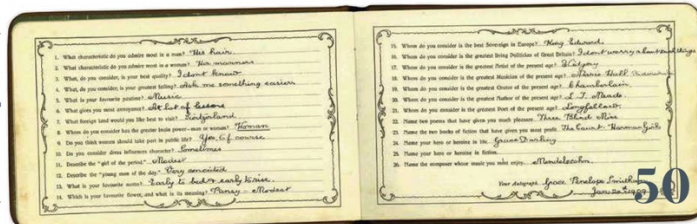 1. What characteristic do you admire most in a man? His hair.
2. What characteristic do you admire most in a woman? Her manners
3. What, do you consider, is your best quality? I don't know
4. What, do you consider, is your greatest failing? Ask me something easier
5. What is your favourite pastime? Music
6. What gives you most annoyance? A lot of lessons
7. What foreign land would you like to visit? Switzerland
8. Whom do you consider has the greater brain power—man or woman? Woman
9. Do you think women should take part in public life? Yes, of course
10. Do you consider dress influences character? Sometimes
11. Describe the "girl of the period." Modest
12. Describe the "young man of the day." Very conceited
13. What is your favourite motto? Early to bed & early to rise
14. Which is your favourite flower, and what is its meaning? Pansy - Modest
15. Whom do you consider is the best Sovereign in Europe? King Edward
16. Whom do you consider is the best living Politician of Great Britain? I don't worry about such things
17. Whom do you consider is the greatest Artist of the present age?
18. Whom do you consider is the greatest Musician of the present age? Marie Hall
19. Whom do you consider is the greatest Orator of the present age? Chamberlain
20. Whom do you consider is the greatest Author of the present age? L. T. Meade
21. Whom do you consider is the greatest Poet of the present age? Longfellow
22. Name two poems that have given you much pleasure. Three Blind Mice
23. Name the two books of fiction that have given you most profit. The Court
24. Name your hero or heroine in life. Grace Darling
25. Name your hero or heroine in fiction.
26. Name the composer whose music you most enjoy. Mendelssohn.
Your Autograph. Grace Penelope
Jan 20th 1909
50